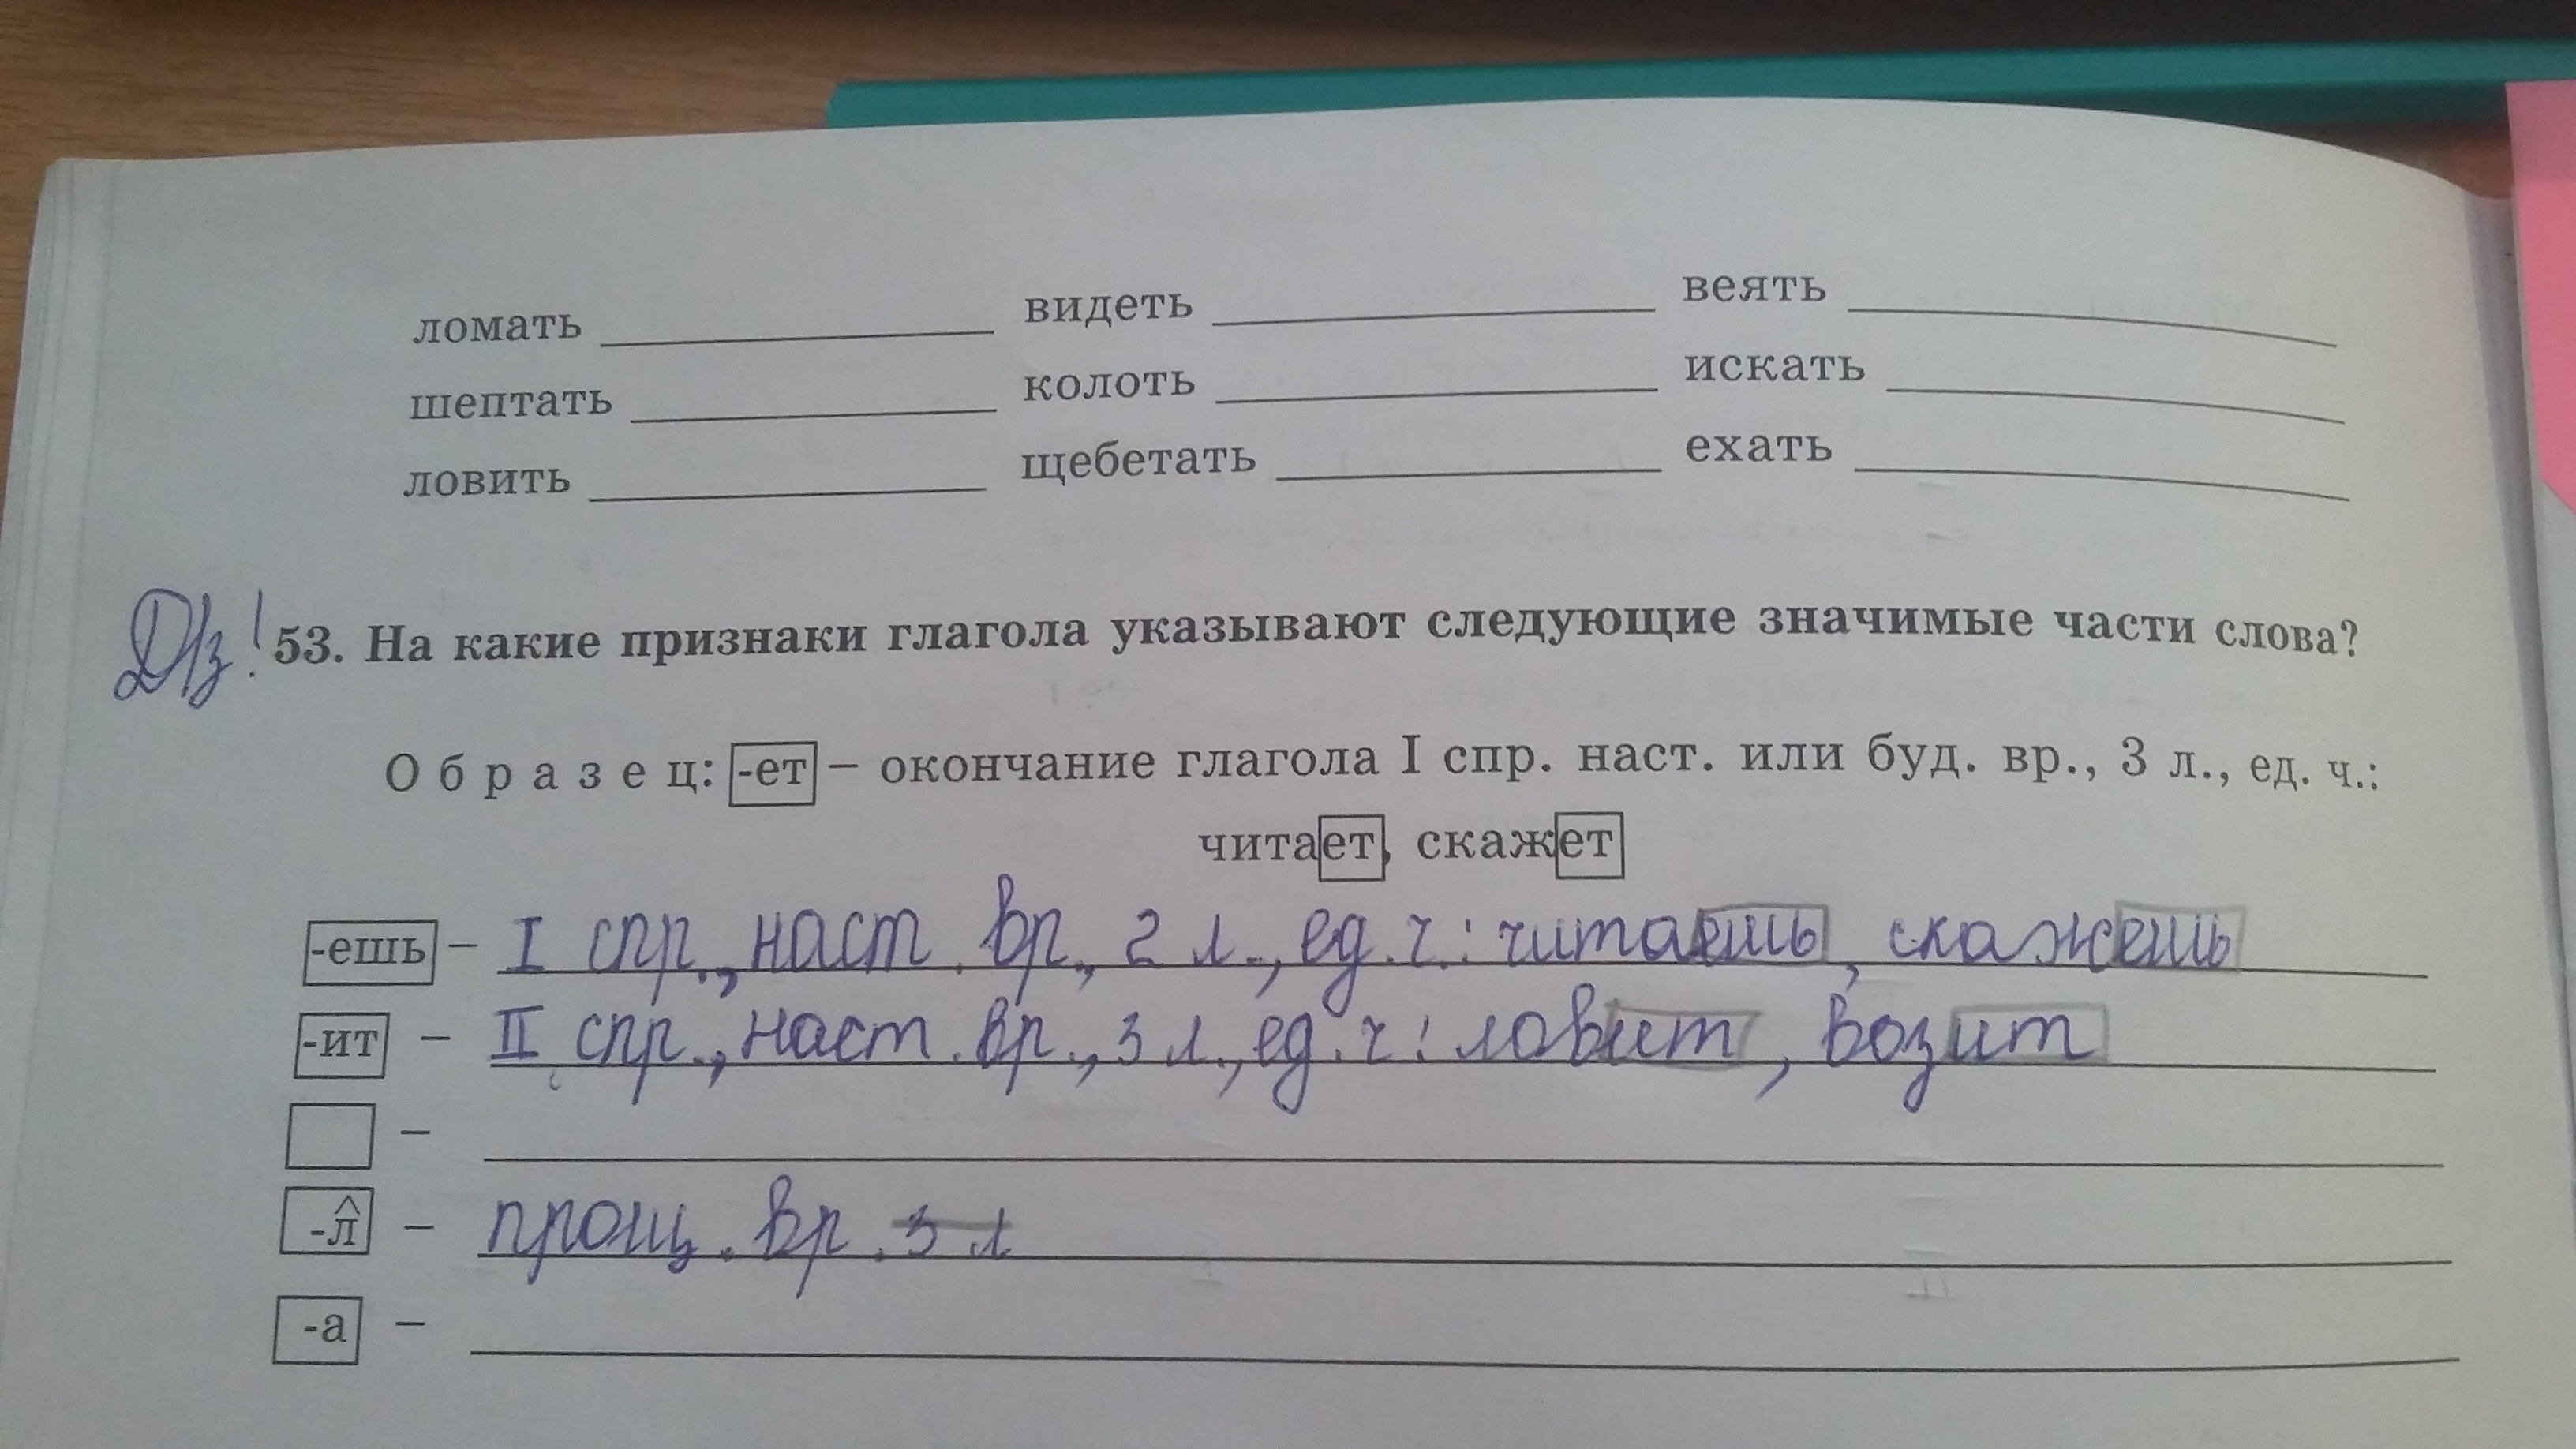 ломать ____ видеть ____ веять ____
шептать ____ колоть ____ искать ____
ловить ____ щебетать ____ ехать ____
Д/з! 53. На какие признаки глагола указывают следующие значимые части слова?
Образец: -ет – окончание глагола I спр. наст. или буд. вр., 3 л., ед. ч.:
читает, скажет
-ешь – I спр., наст. вр., 2 л., ед. ч.: читаешь, скажешь
-ит – II спр., наст. вр., 3 л., ед. ч: ловит, возит
–
-л – прош. вр. 3 л
-а –